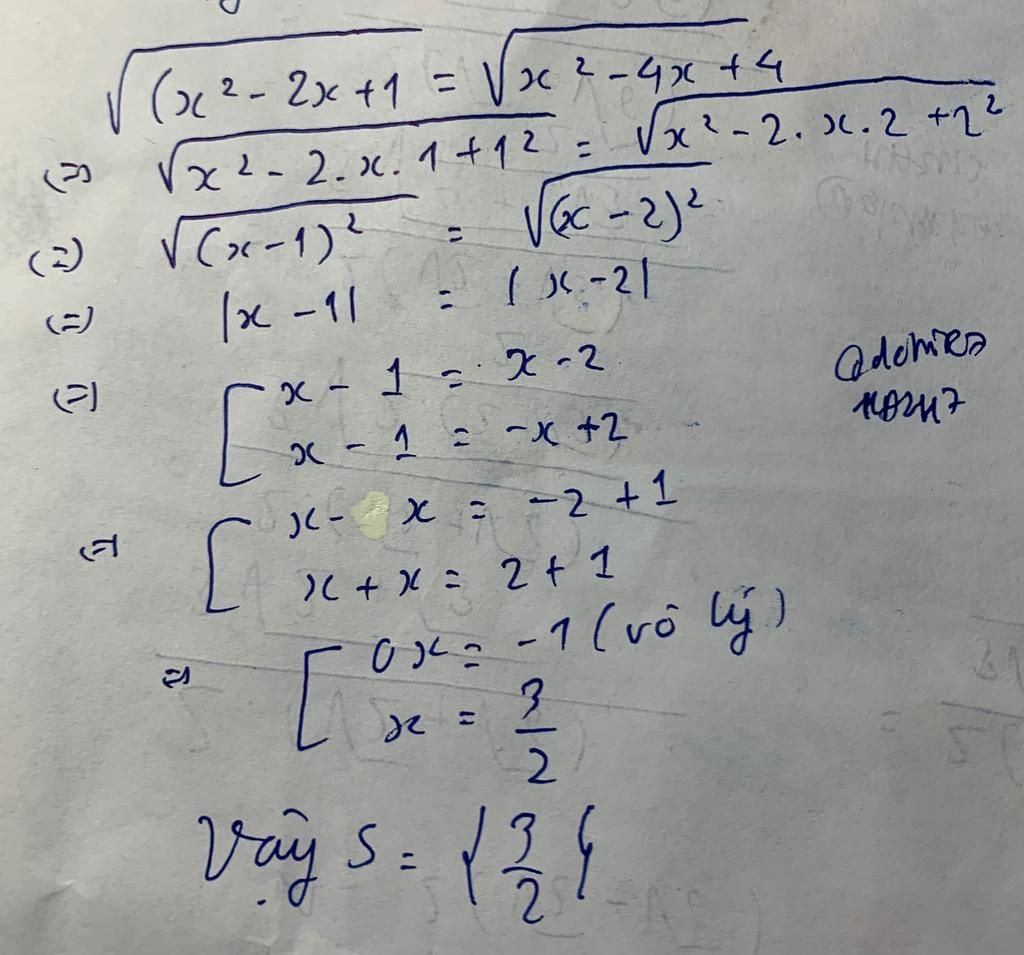 √(x² - 2x + 1 = √x² - 4x + 4
(=) √x² - 2. x. 1 + 1² = √x² - 2. x. 2 + 2²
(=) √(x - 1)² = √(x - 2)²
(=) |x - 1| = |x - 2|
(=) [ x - 1 = x - 2
x - 1 = -x + 2
(=) [ x - x = -2 + 1
x + x = 2 + 1
(=) [ 0x = -1 (vô lý)
x = 3/2
Vậy S = {3/2}